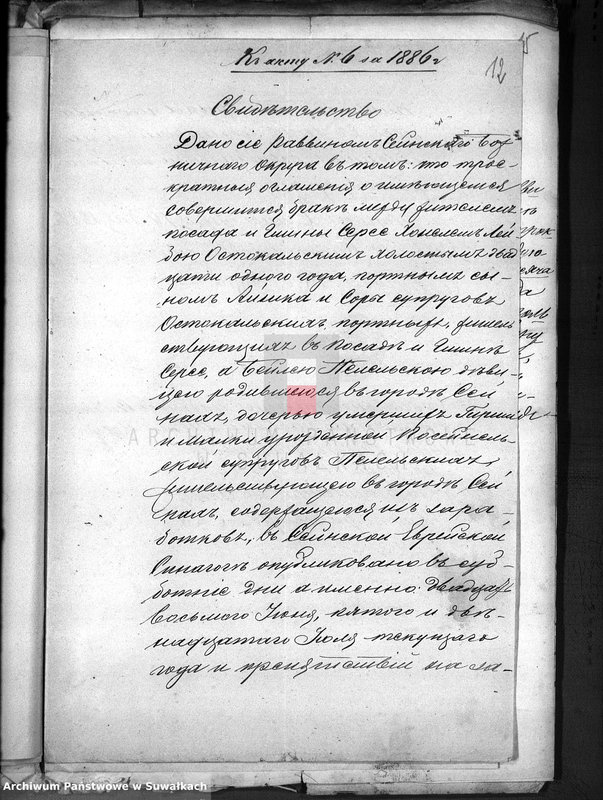 12
Къ акту № 6 за 1886 г
Свидѣтельство
Дано сіе Раввиномъ Сейнскаго Боз
ничнаго Округа въ томъ: что трое-
кратныя оглашенія о имѣющемся
совершится бракѣ между жителемъ
посада и Гмины Серее Хонелемъ Лей
бою Остокальскимъ холостымъ двад
цати одного года, портнымъ сы-
номъ Айзика и Соры супруговъ
Остокальскихъ портныхъ, житель
ствующихъ въ Посадѣ и Гминѣ
Серее, а Бейлею Пепельскою дѣви-
цею родившеюся въ городѣ Сей
нахъ, дочерью умершихъ
и Малки урожденной
ской супруговъ Пепельскихъ,
жительствующею въ городѣ Сей
нахъ, содержащеюся изъ зара-
ботковъ, въ Сейнской Еврейской
Синагогѣ опубликовано въ суб-
ботніе дни а именно: двадцать
восьмаго Іюня, пятого и двѣ-
надцатаго Іюля текущаго
года и препятствій на за-
ARCHIWUM
Archiwum Państwowe w Suwałkach